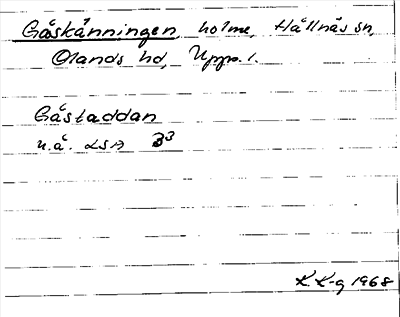 Gåskänningen, holme, Hållnäs sn,
Olands hd, Upps. l.
Gåstaddan
u.å. LSA B3
K K-g 1968